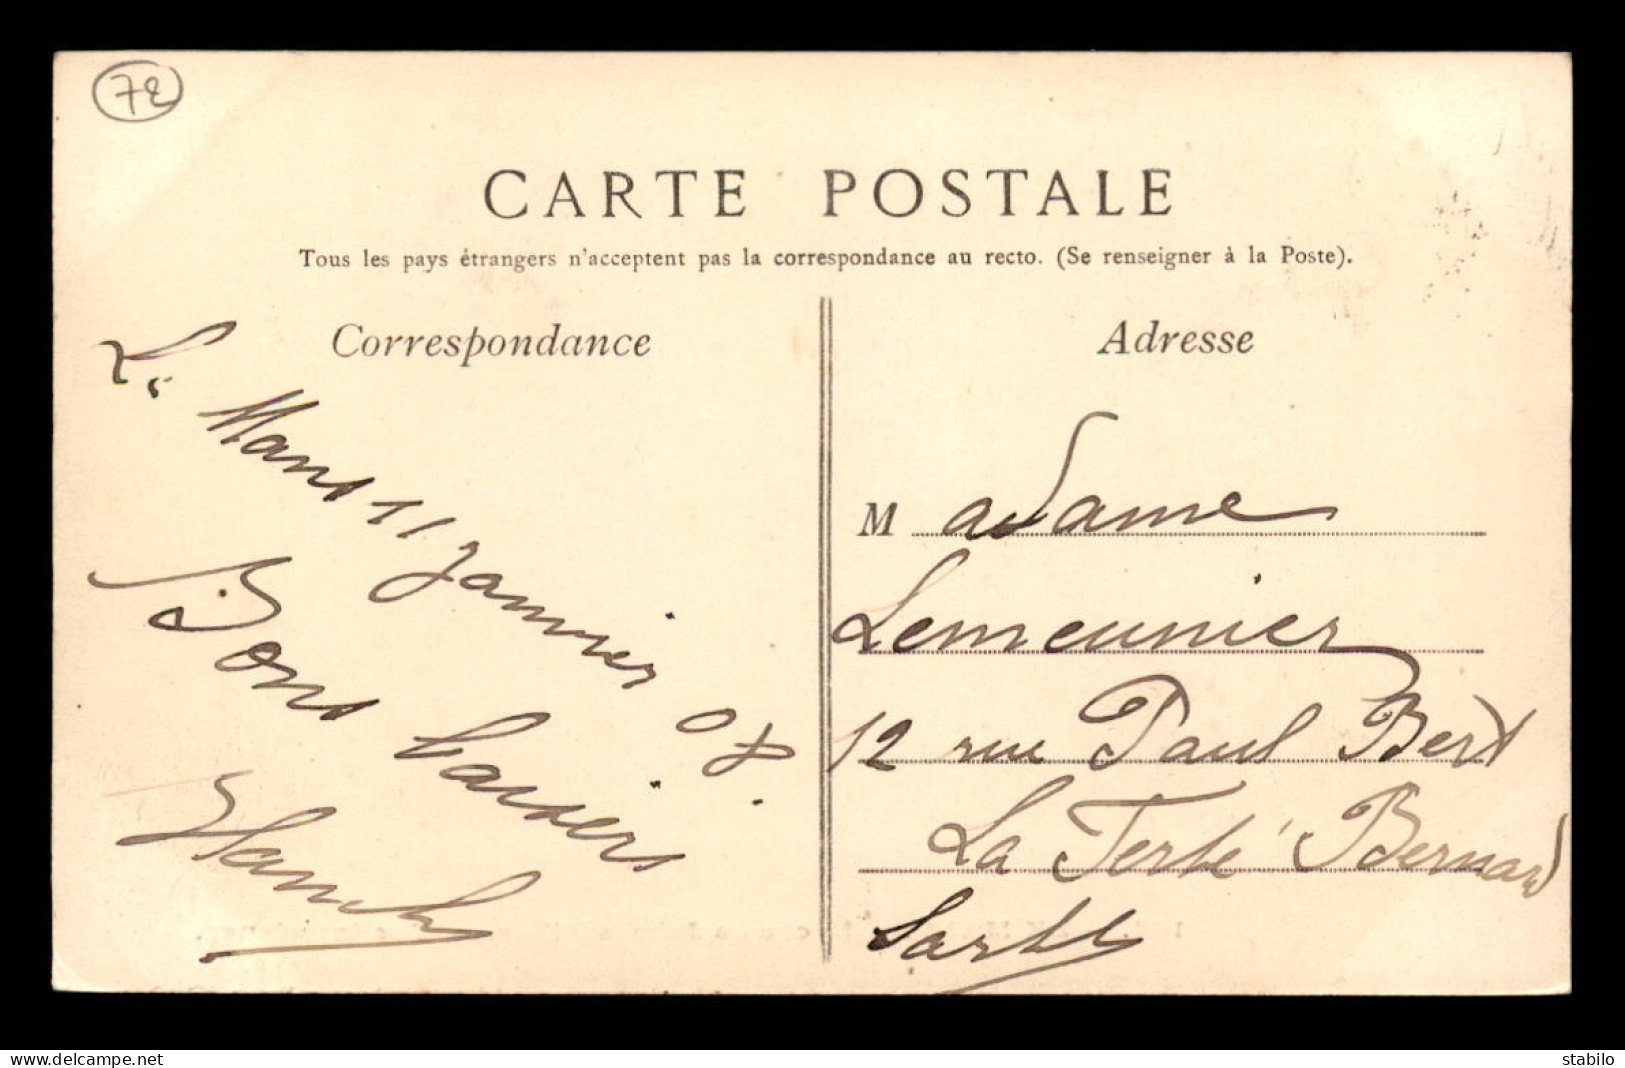 72
CARTE POSTALE
Tous les pays étrangers n'acceptent pas la correspondance au recto. (Se renseigner à la Poste).
Correspondance
Le Mans 11 Janvier 08.
Bons baisers
Adresse
Madame
Lemeunier
12 rue Paul Bert
La Ferté Bernard
Sarthe
delcampe.net
stabilo